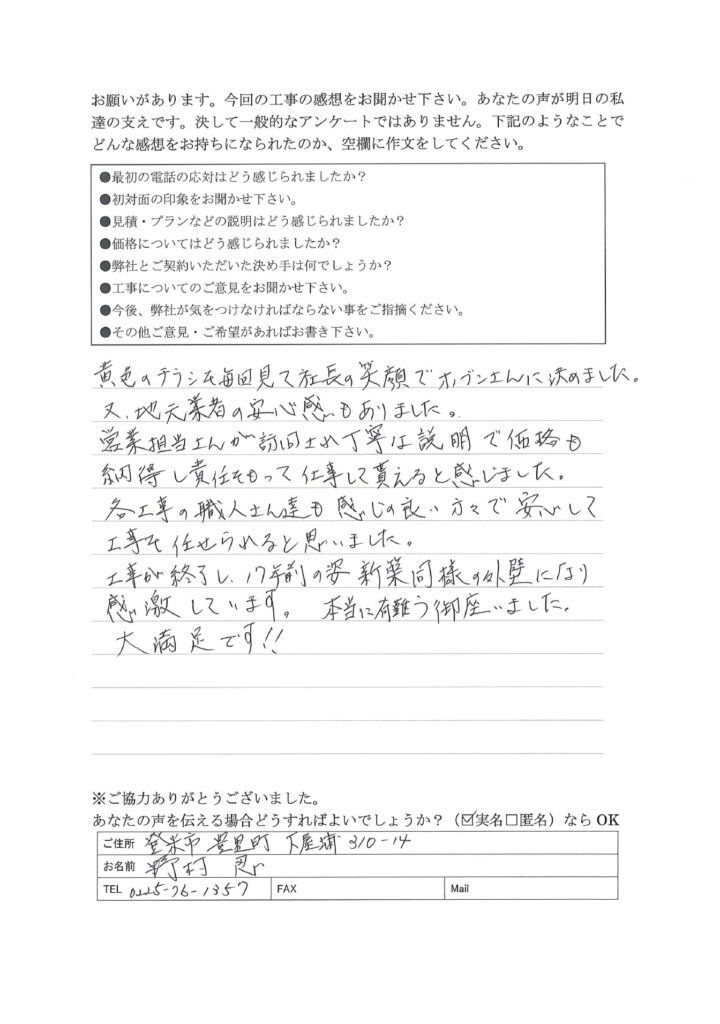 お願いがあります。今回の工事の感想をお聞かせ下さい。あなたの声が明日の私
達の支えです。決して一般的なアンケートではありません。下記のようなことで
どんな感想をお持ちになられたのか、空欄に作文をしてください。
●最初の電話の応対はどう感じられましたか?
●初対面の印象をお聞かせ下さい。
●見積・プランなどの説明はどう感じられましたか?
●価格についてはどう感じられましたか?
●弊社とご契約いただいた決め手は何でしょうか?
●工事についてのご意見をお聞かせ下さい。
●今後、弊社が気をつけなければならない事をご指摘ください。
●その他ご意見・ご希望があればお書き下さい。
黄色のチラシを毎回見て社長の笑顔でオノブンさんに決めました。
又、地元業者の安心感もありました。
営業担当さんが訪問され丁寧な説明で価格も
納得し責任をもって仕事して貰えると感じました。
各工事の職人さん達も感じの良い方々で安心して
工事を任せられると思いました。
工事が終了し、17年前の姿新築同様の外壁になり
感激しています。本当に有難う御座いました。
大満足です!!
※ご協力ありがとうございました。
あなたの声を伝える場合どうすればよいでしょうか?(☑実名□匿名)なら OK
ご住所 登米市 豊里町 下屋浦 310-14
お名前 野村 忍
TEL 0225-76-1357 FAX Mail